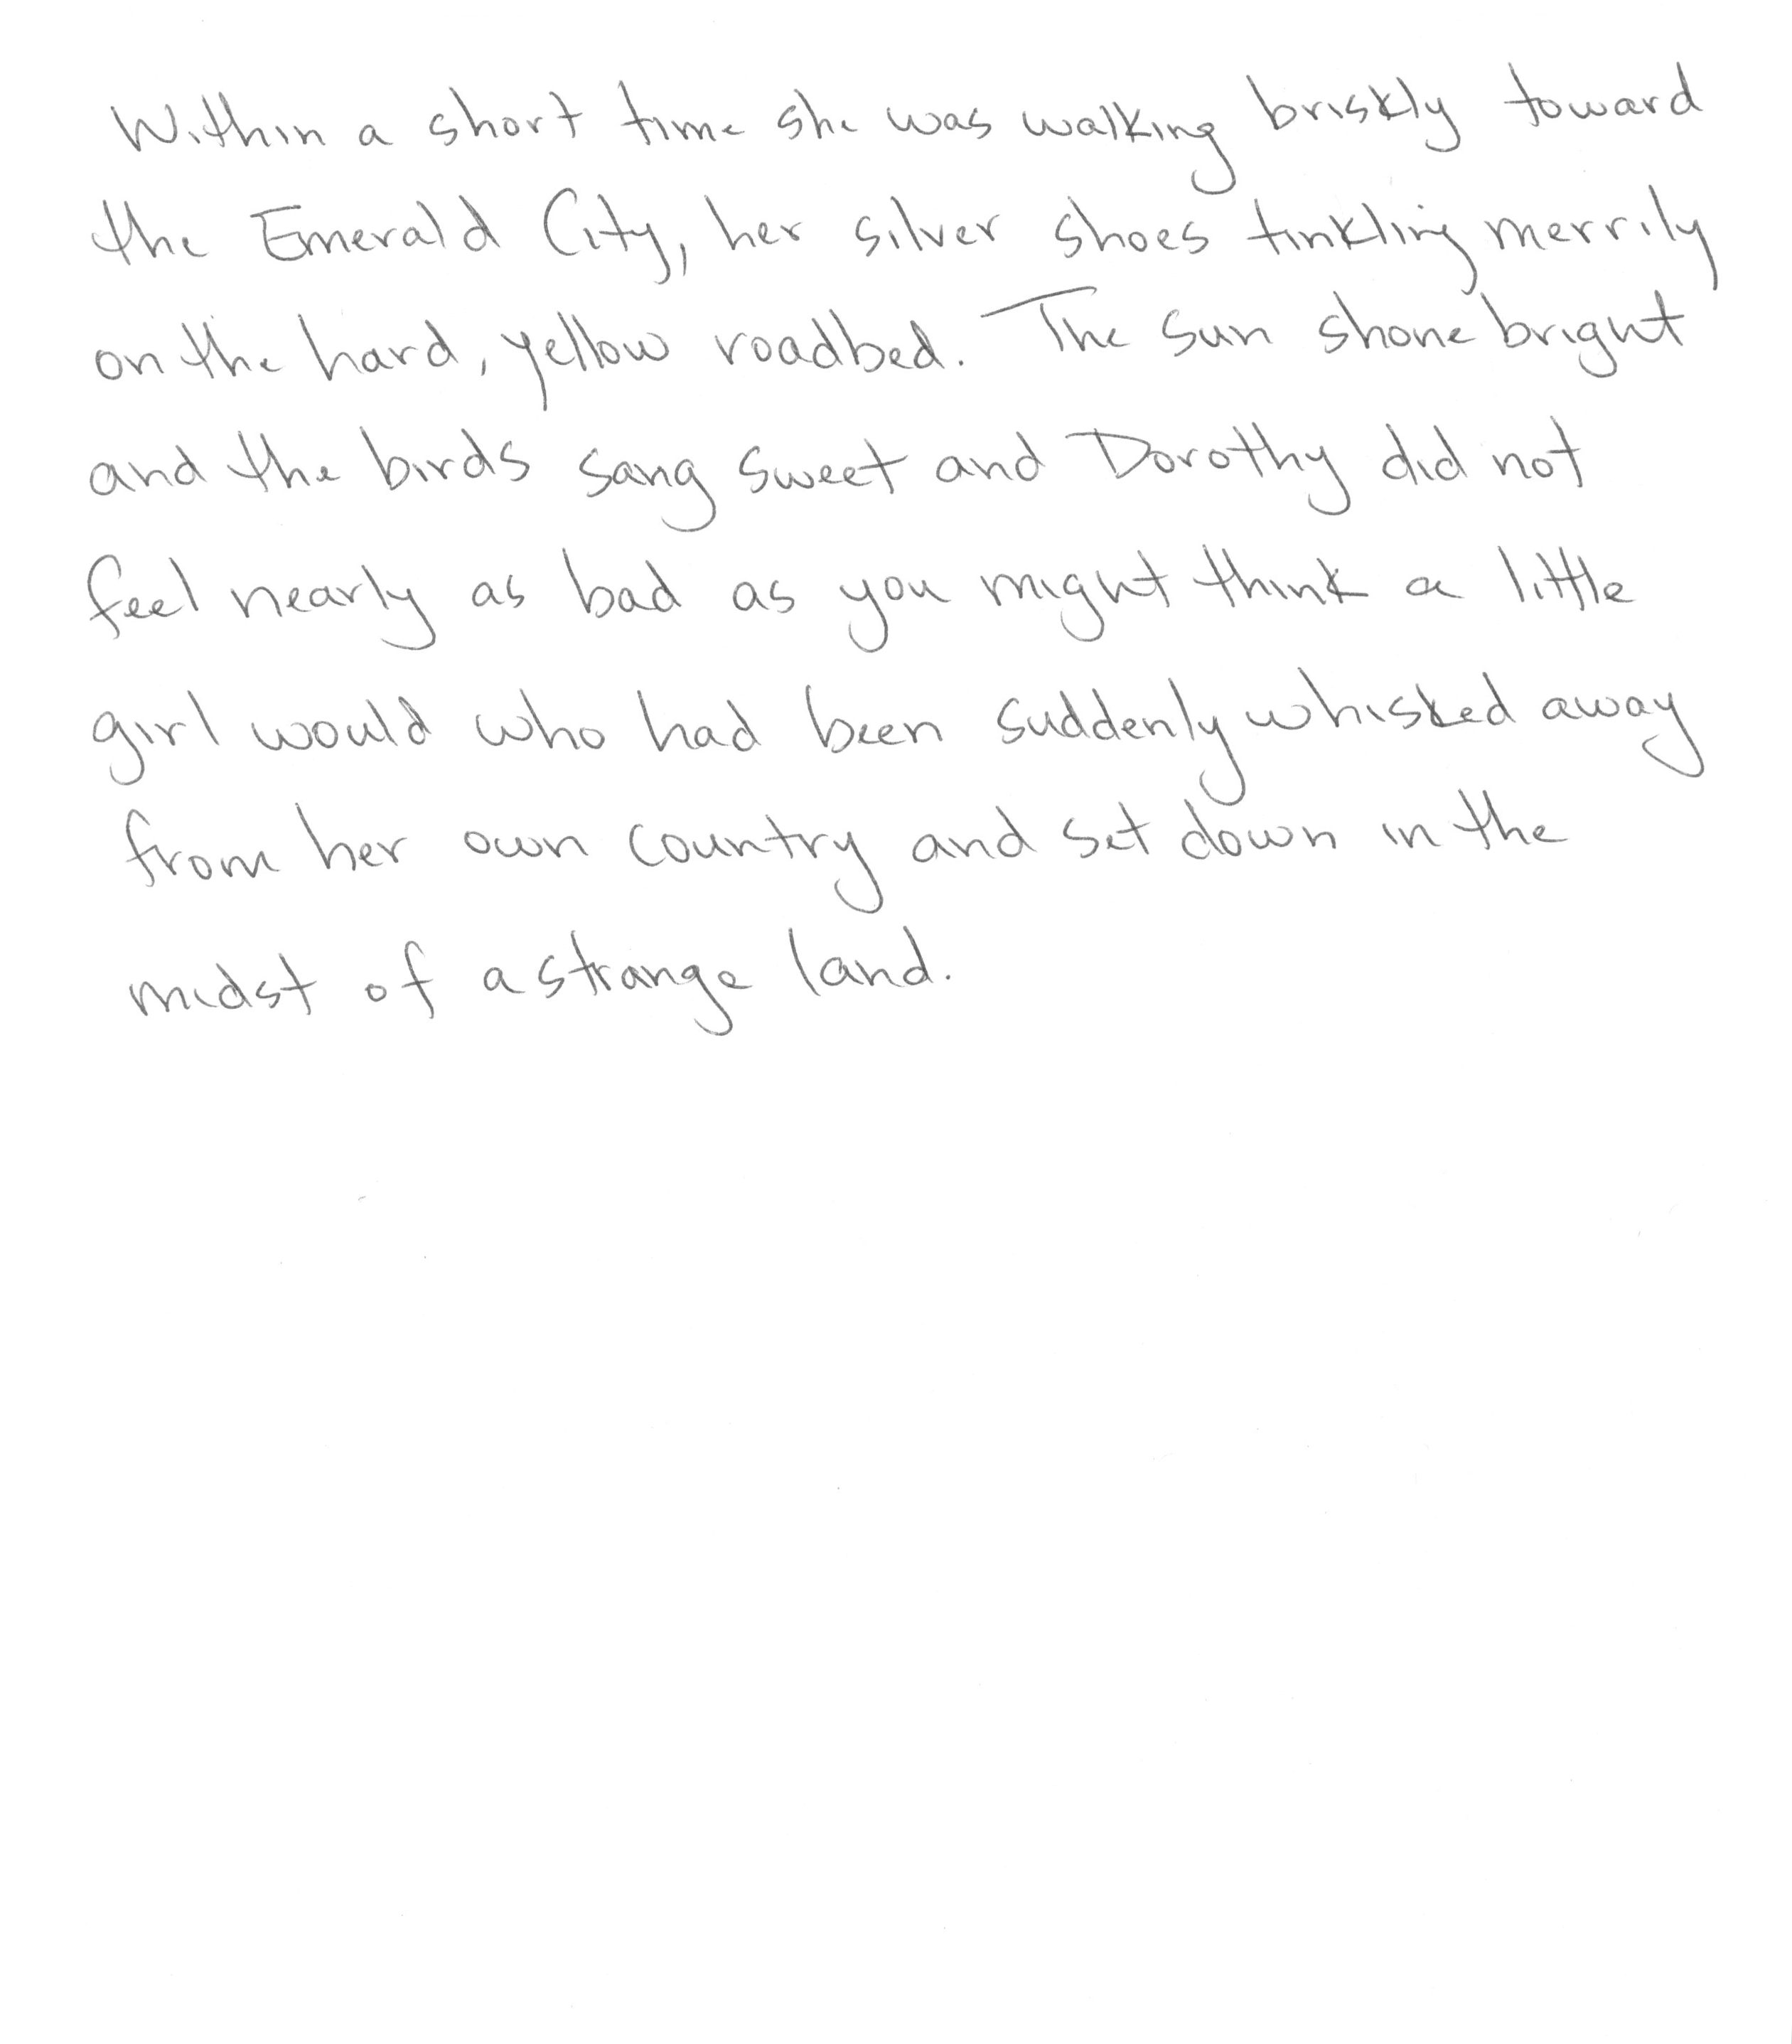 Within a short time she was walking briskly toward
the Emerald City, her silver shoes tinkling merrily
on the hard, yellow roadbed. The sun shone bright
and the birds sang sweet and Dorothy did not
feel nearly as bad as you might think a little
girl would who had been suddenly whisked away
from her own country and set down in the
midst of a strange land.